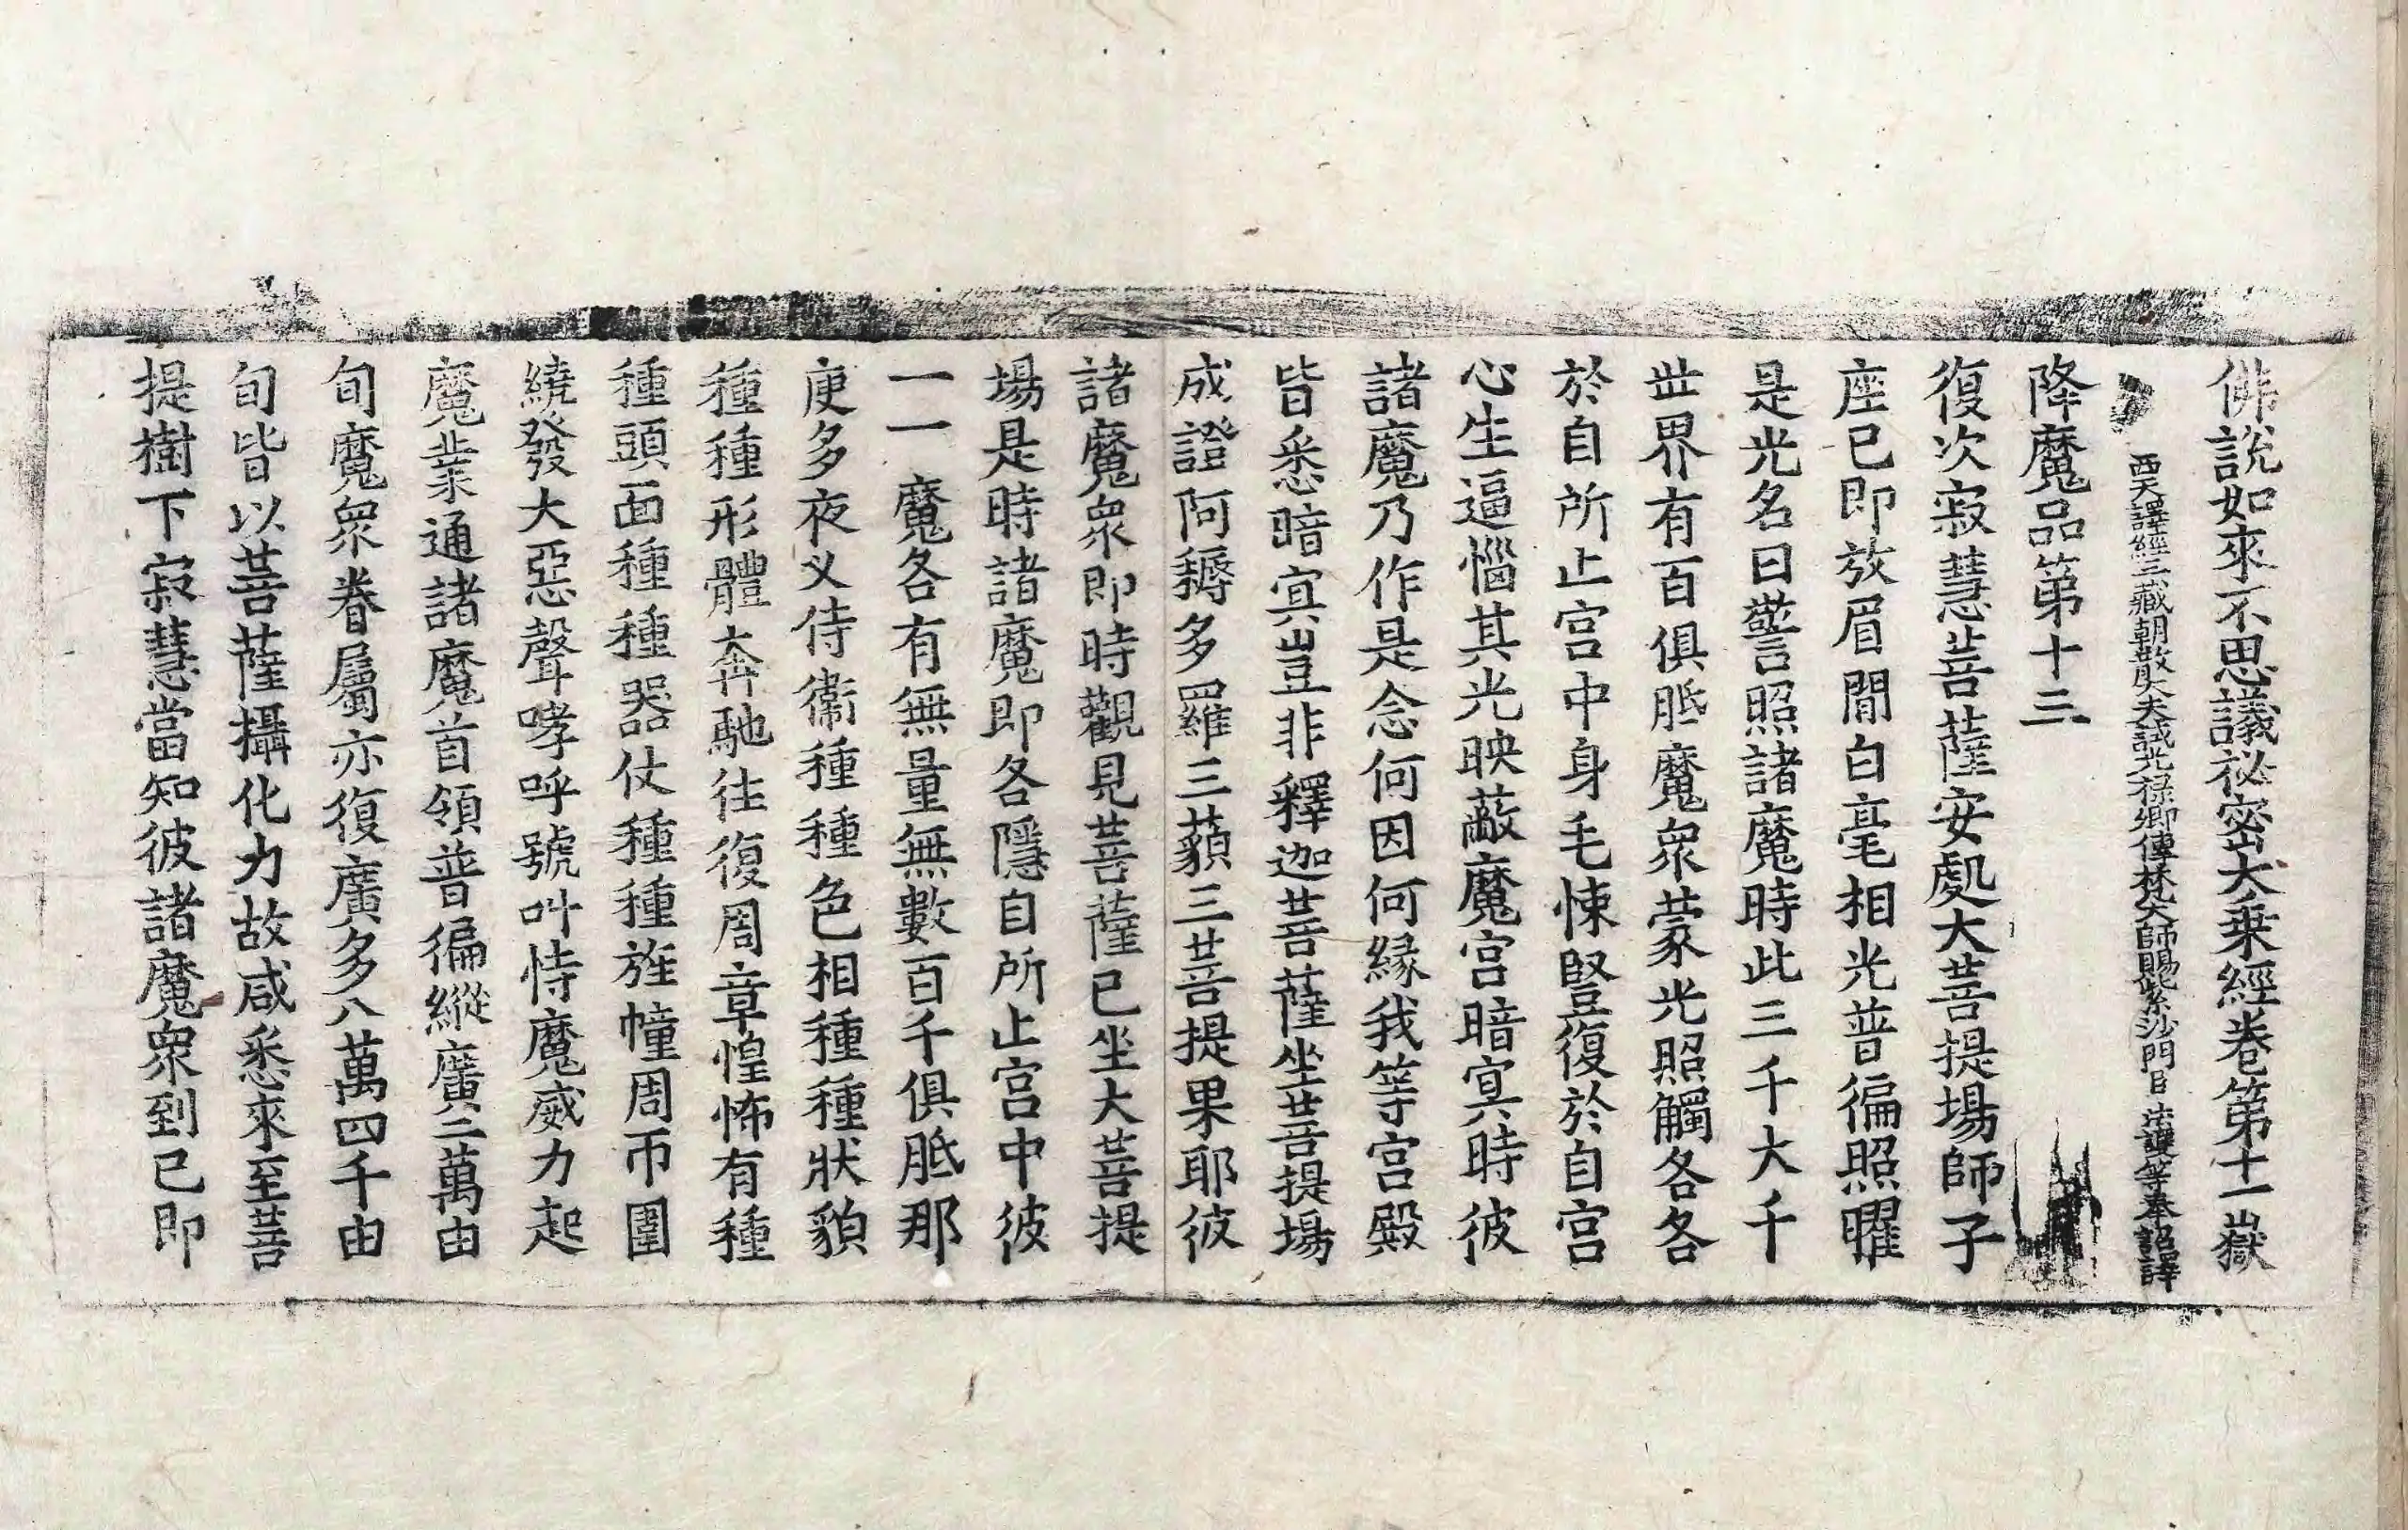 佛說如來不思議祕密大乗經卷第十一嶽
西天譯經三藏朝散大夫試光祿卿傳梵大師賜紫沙門臣法護等奉詔譯
降魔品第十三
復次寂慧菩薩安處大菩提場師子
座已即放眉間白毫相光普徧照曜
是光名曰警照諸魔時此三千大千
世界有百俱胝魔衆蒙光照觸各各
於自所止宫中身毛悚竪復於自宫
心生逼惱其光映蔽魔宫暗㝠時彼
諸魔乃作是念何因何縁我等宫殿
皆悉暗㝠豈非釋迦菩薩坐菩提場
成證阿耨多羅三藐三菩提果耶彼
諸魔衆即時觀見菩薩已坐大菩提
場是時諸魔即各隱自所止宫中彼
一一魔各有無量無數百千俱胝那
庾多夜叉侍衞種種色相種種狀貌
種種形體奔馳往復周章惶怖有種
種頭面種種器仗種種旌幢周帀圍
繞發大惡聲哮呼號叫恃魔威力起
魔業通諸魔首領普徧縱廣二萬由
旬魔衆眷屬亦復廣多八萬四千由
旬皆以菩薩攝化力故咸悉來至菩
提樹下寂慧當知彼諸魔衆到已即